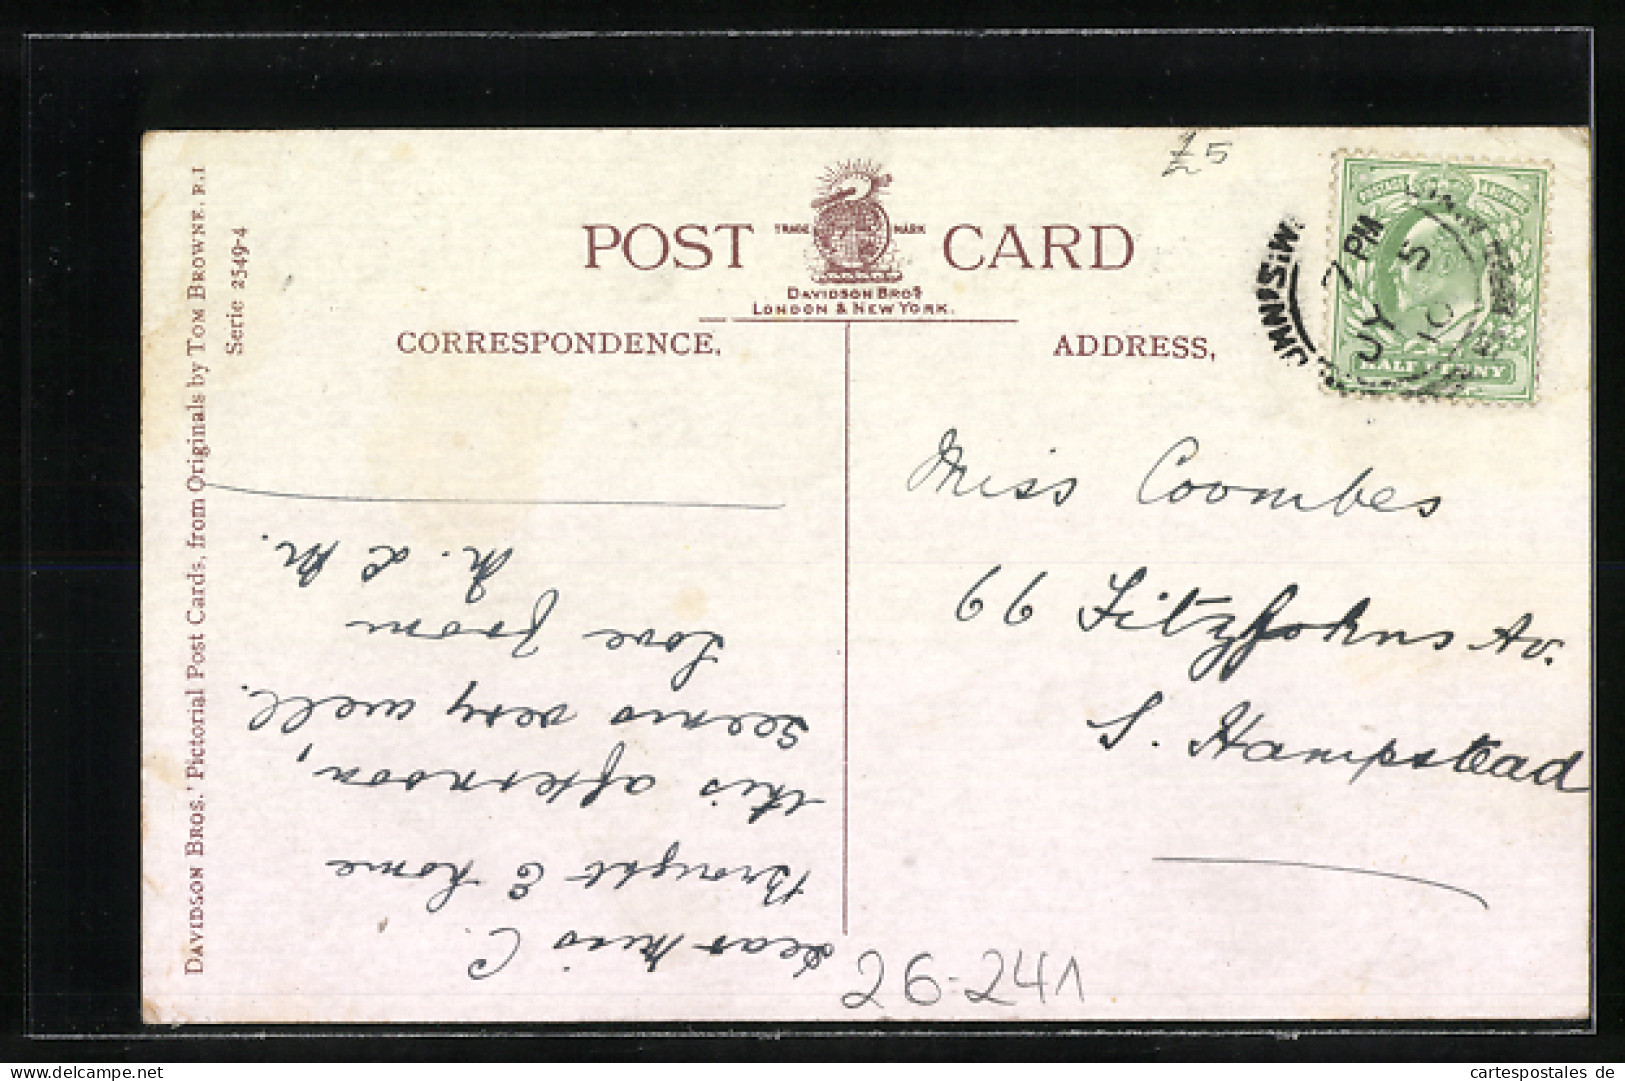 £5
POST CARD
TRADE MARK
DAVIDSON BROS
LONDON & NEW YORK.
CORRESPONDENCE.
ADDRESS,
DAVIDSON BROS.' Pictorial Post Cards, from Originals by TOM BROWNE, R.I
Serie 2549-4
S.W.
7 PM
JY 5
10
HALFPENNY
Miss Coombes
66 Fitzjohns Av.
S. Hampstead
Dear Miss C.
Brought E home
this afternoon,
seems very well.
Love from
M. & M.
26-241
cartespostales de